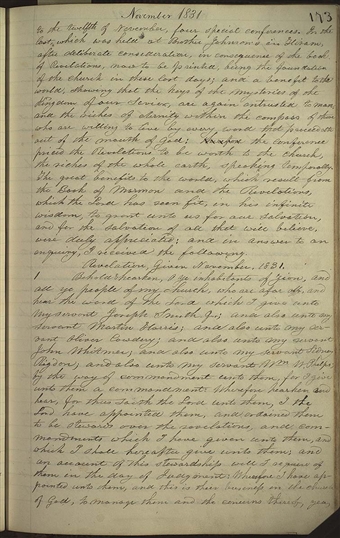 November 1831
173
to the twelfth of November, four special conferences. In the
last, which was held at Brother Johnson's in Hiram,
after deliberate consideration, in consequence of the book
of Revelations, now to be printed, being the foundation
of the church in these last days; and a benefit to the
world, showing that the keys of the mysteries of the
Kingdom of our Savior, are again intrusted to man;
and the riches of eternity within the compass of those
who are willing to live by every word that proceedeth
out of the mouth of God; the conference
prized the Revelations to be worth to the church,
the riches of the whole earth, speaking temporally.
The great benefits to the world, which result from
the Book of Mormon and the Revelations,
which the Lord has seen fit, in his infinite
wisdom, to grant unto us for our salvation,
and for the salvation of all that will believe,
were duly appreciated; and in answer to an
inquiry, I received the following.
Revelation, Given November, 1831.
1 Behold, Hearken, O ye inhabitants of Zion, and
all ye people of my church, who are afar off, and
hear the word of the Lord which I give unto
my servant Joseph Smith Jr; and also unto my
servant Martin Harris; and also unto my ser-
vant Oliver Cowdery; and also unto my servant
John Whitmer; and also unto my servant Sidney
Rigdon; and also unto my servant Wm W. Phelps
by the way of commandment unto them, for I give
unto them a commandment: Wherefore hearken and
hear, for thus saith the Lord unto them, I the
Lord have appointed them, and ordained them
to be stewards over the revelations, and com-
mandments which I have given unto them, and
which I shall hereafter give unto them; and
an account of this stewardship will I require of
them in the day of Judgment: Wherefore I have ap-
pointed unto them, and this is their business in the church
of God, to manage them and the concerns thereof, yea,